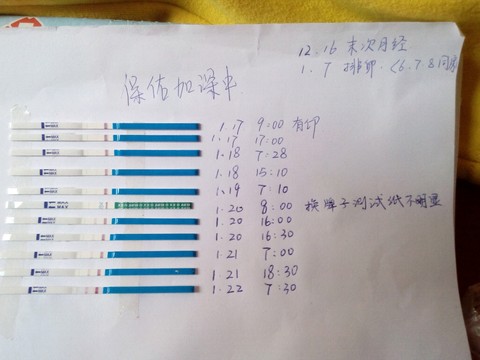 12.16 末次月经
1.7 排卵.(6.7.8同房
保佑加深中
1.17 9:00 有印
1.17 17:00
1.18 7:28
1.18 15:10
1.19 7:10
1.20 8:00 换牌子测试纸不明显
1.20 16:00
1.20 16:30
1.21 7:00
1.21 18:30
1.22 7:30